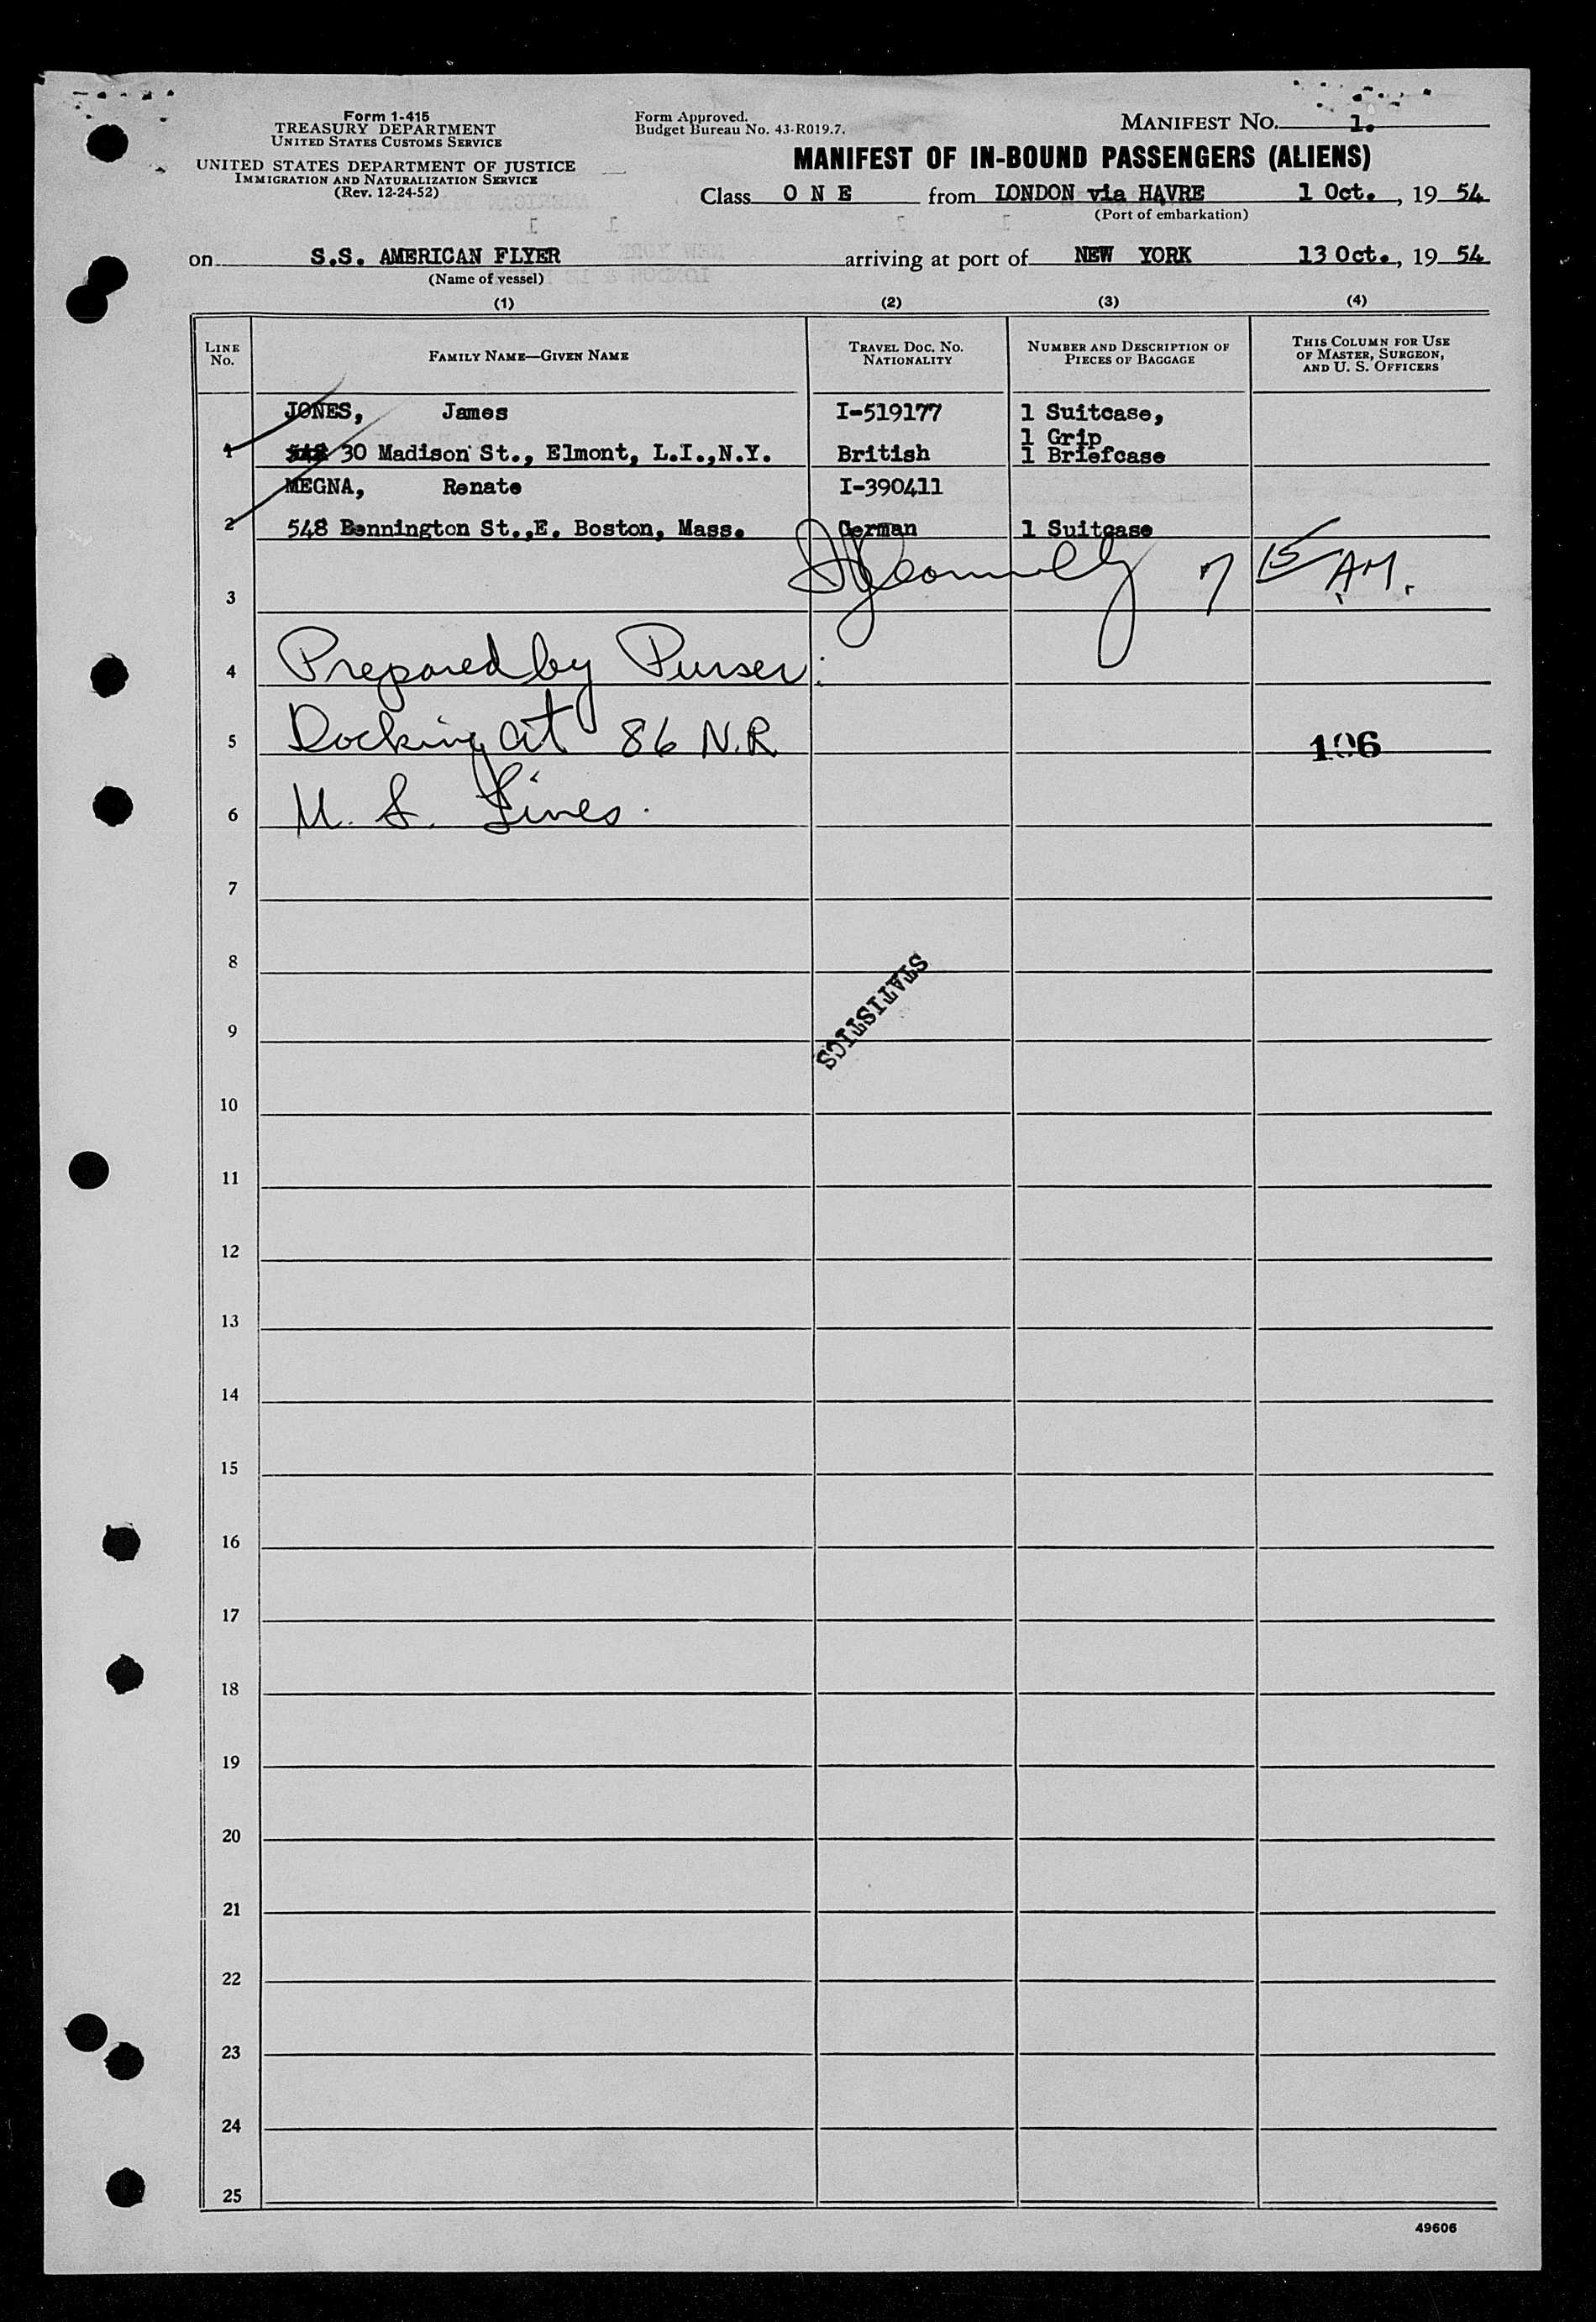 Form I-415
TREASURY DEPARTMENT
UNITED STATES CUSTOMS SERVICE
UNITED STATES DEPARTMENT OF JUSTICE
IMMIGRATION AND NATURALIZATION SERVICE
(Rev. 12-24-52)
Form Approved.
Budget Bureau No. 43-R019.7.
MANIFEST NO. 1.
MANIFEST OF IN-BOUND PASSENGERS (ALIENS)
Class O N E from LONDON via HAVRE 1 Oct., 19 54
(Port of embarkation)
on S.S. AMERICAN FLYER arriving at port of NEW YORK 13 Oct., 19 54
(Name of vessel)
(1) (2) (3) (4)
LINE No. FAMILY NAME—GIVEN NAME TRAVEL DOC. NO. NATIONALITY NUMBER AND DESCRIPTION OF PIECES OF BAGGAGE THIS COLUMN FOR USE OF MASTER, SURGEON, AND U. S. OFFICERS
JONES, James I-519177 1 Suitcase,
1 Grip
1 30 Madison St., Elmont, L.I.,N.Y. British 1 Briefcase
MEGNA, Renate I-390411
2 548 Bennington St.,E. Boston, Mass. German 1 Suitcase
3 7 15 A.M.
4 Prepared by Purser
5 Docking at 86 N.R. 106
6 U. S. Lines.
7
8
STATISTICS
9
10
11
12
13
14
15
16
17
18
19
20
21
22
23
24
25
49606